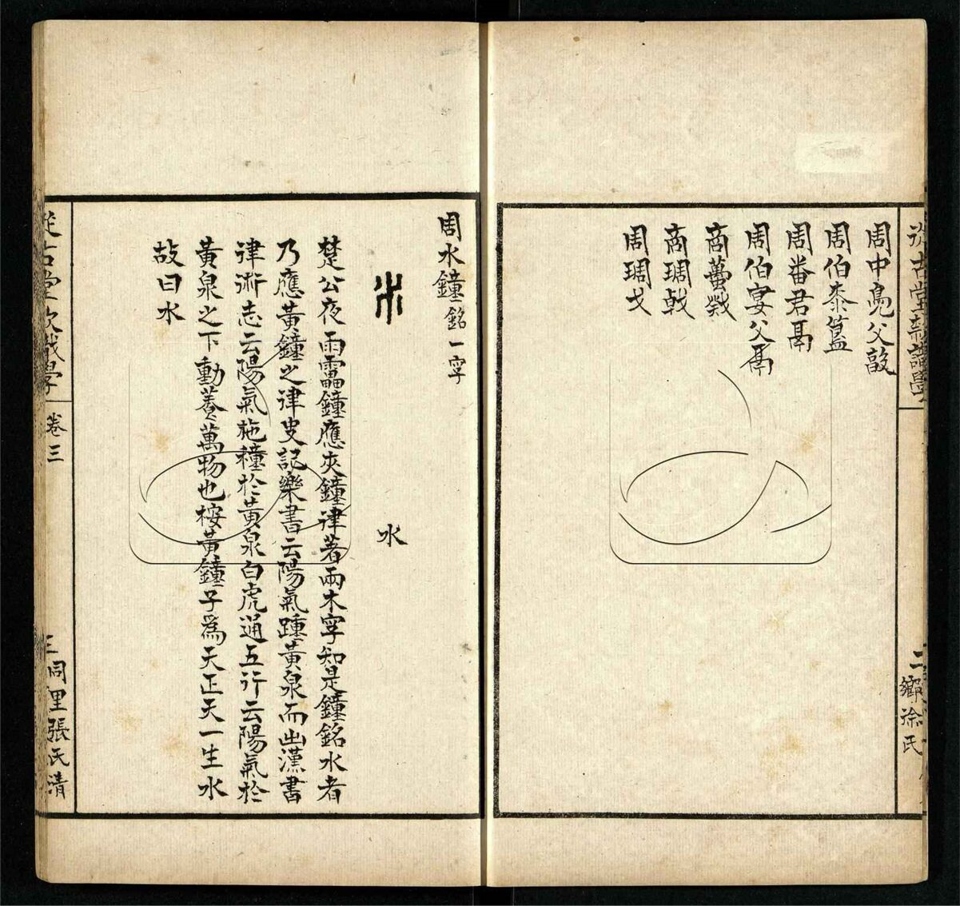 周中㲋父敦
周伯桼簋
周番君鬲
周伯宴父鬲
商萬㦰
商琱戟
周琱戈
周水鐘銘一字
水
楚公夜雨雷鐘應夾鐘律著兩木字知是鐘銘水者
乃應黃鐘之律史記樂書云陽氣踵黃泉而出漢書
律術志云陽氣施種於黃泉白虎通五行云陽氣於
黃泉之下動養萬物也桉黃鐘子為天正天一生水
故曰水
從古堂款識學
卷三
三
同里張氏清
二
鄉徐氏